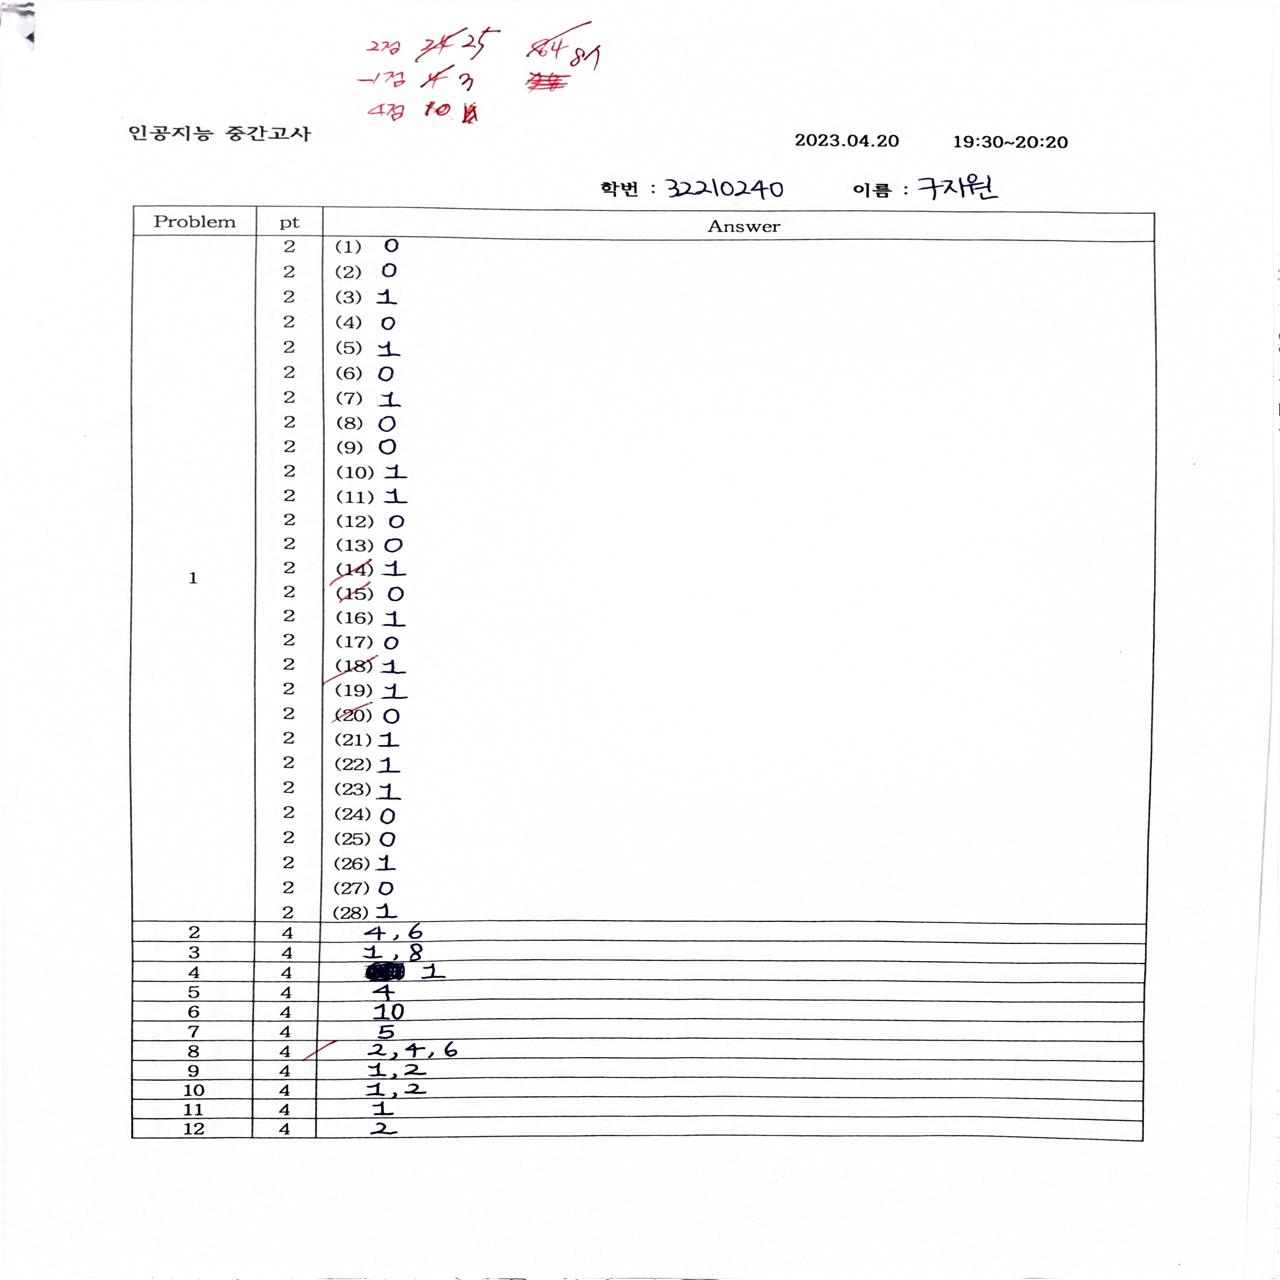 2점 24 25 84 87
-1점 4 3
4점 10
인공지능 중간고사
2023.04.20 19:30~20:20
학번 : 32210240 이름 : 구자원
Problem pt Answer
2 (1) 0
2 (2) 0
2 (3) 1
2 (4) 0
2 (5) 1
2 (6) 0
2 (7) 1
2 (8) 0
2 (9) 0
2 (10) 1
2 (11) 1
2 (12) 0
2 (13) 0
1 2 (14) 1
2 (15) 0
2 (16) 1
2 (17) 0
2 (18) 1
2 (19) 1
2 (20) 0
2 (21) 1
2 (22) 1
2 (23) 1
2 (24) 0
2 (25) 0
2 (26) 1
2 (27) 0
2 (28) 1
2 4 4, 6
3 4 1, 8
4 4 1
5 4 4
6 4 10
7 4 5
8 4 2, 4, 6
9 4 1, 2
10 4 1, 2
11 4 1
12 4 2